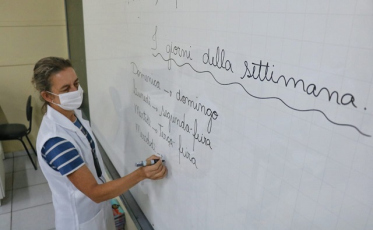 I giorni della settimana.
Domenica → domingo
Lunedì → segunda-feira
Martedì → Terça-feira